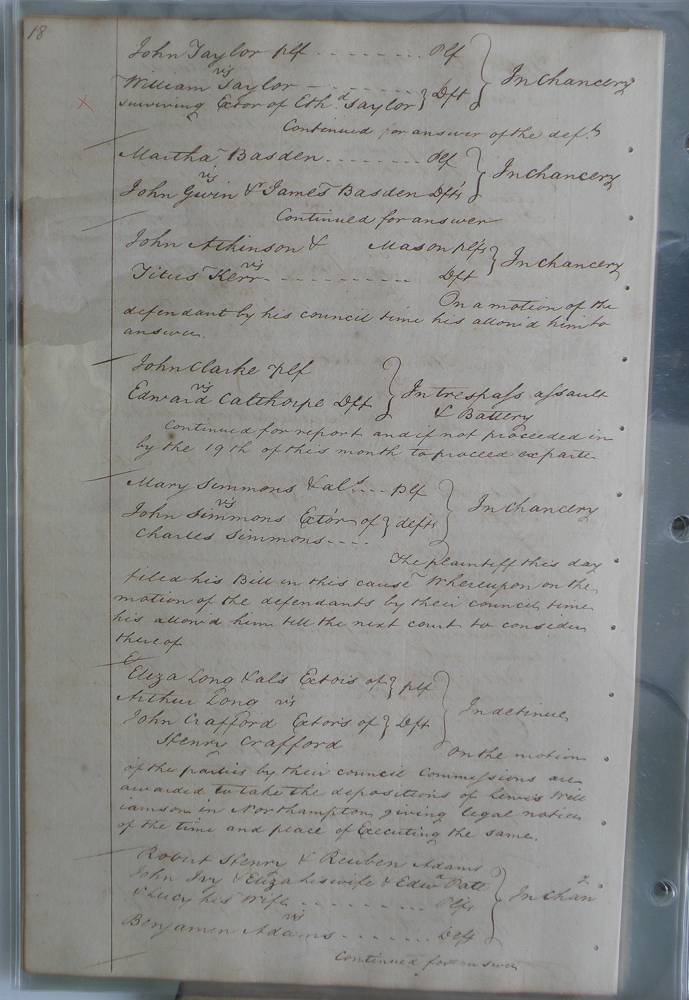 18
John Taylor plf - - - - - - - - Plf } In Chancery
vs
William Taylor - - - - - - - } Dft
surviving Extor of Eth.d Taylor
Continued for answer of the deft.
Martha Basden - - - - - - - - Plf } In Chancery
vs
John Gwin & James Basden Dfts
Continued for answer
John Atkinson & Mason plfs } In Chancery
vs
Titus Kerr - - - - - - - - - - Dft
On a motion of the
defendant by his council time his allow'd him to
answer.
John Clarke plf } In trespass assault
vs
Edward Calthorpe Dft & Battery
Continued for report and if not proceeded in
by the 19th of this month to proceed exparte
Mary Simmons & als - - - Plf } In Chancery
vs
John Simmons Extor of } defts
Charles Simmons - - - -
The plaintiff this day
filed his Bill in this cause Whereupon on the
motion of the defendants by their council time
his allow'd him till the next court to consider
thereof
Eliza Long & als Extors of } plf
Arthur Long vs } In detinue
John Crafford Extors of } Dft
Henry Crafford
On the motion
of the parties by their council Commissions are
awarded to take the depositions of Lewis Will
iamson in Northampton giving legal notice
of the time and place of Executing the same.
Robert Henry & Reuben Adams
John Ivy & Eliza his wife & Edwd Pate } In Chan
& Lucy his Wife - - - - - - - - - Plfs
vs
Benjamen Adams - - - - - - - Deft
Continued for answer